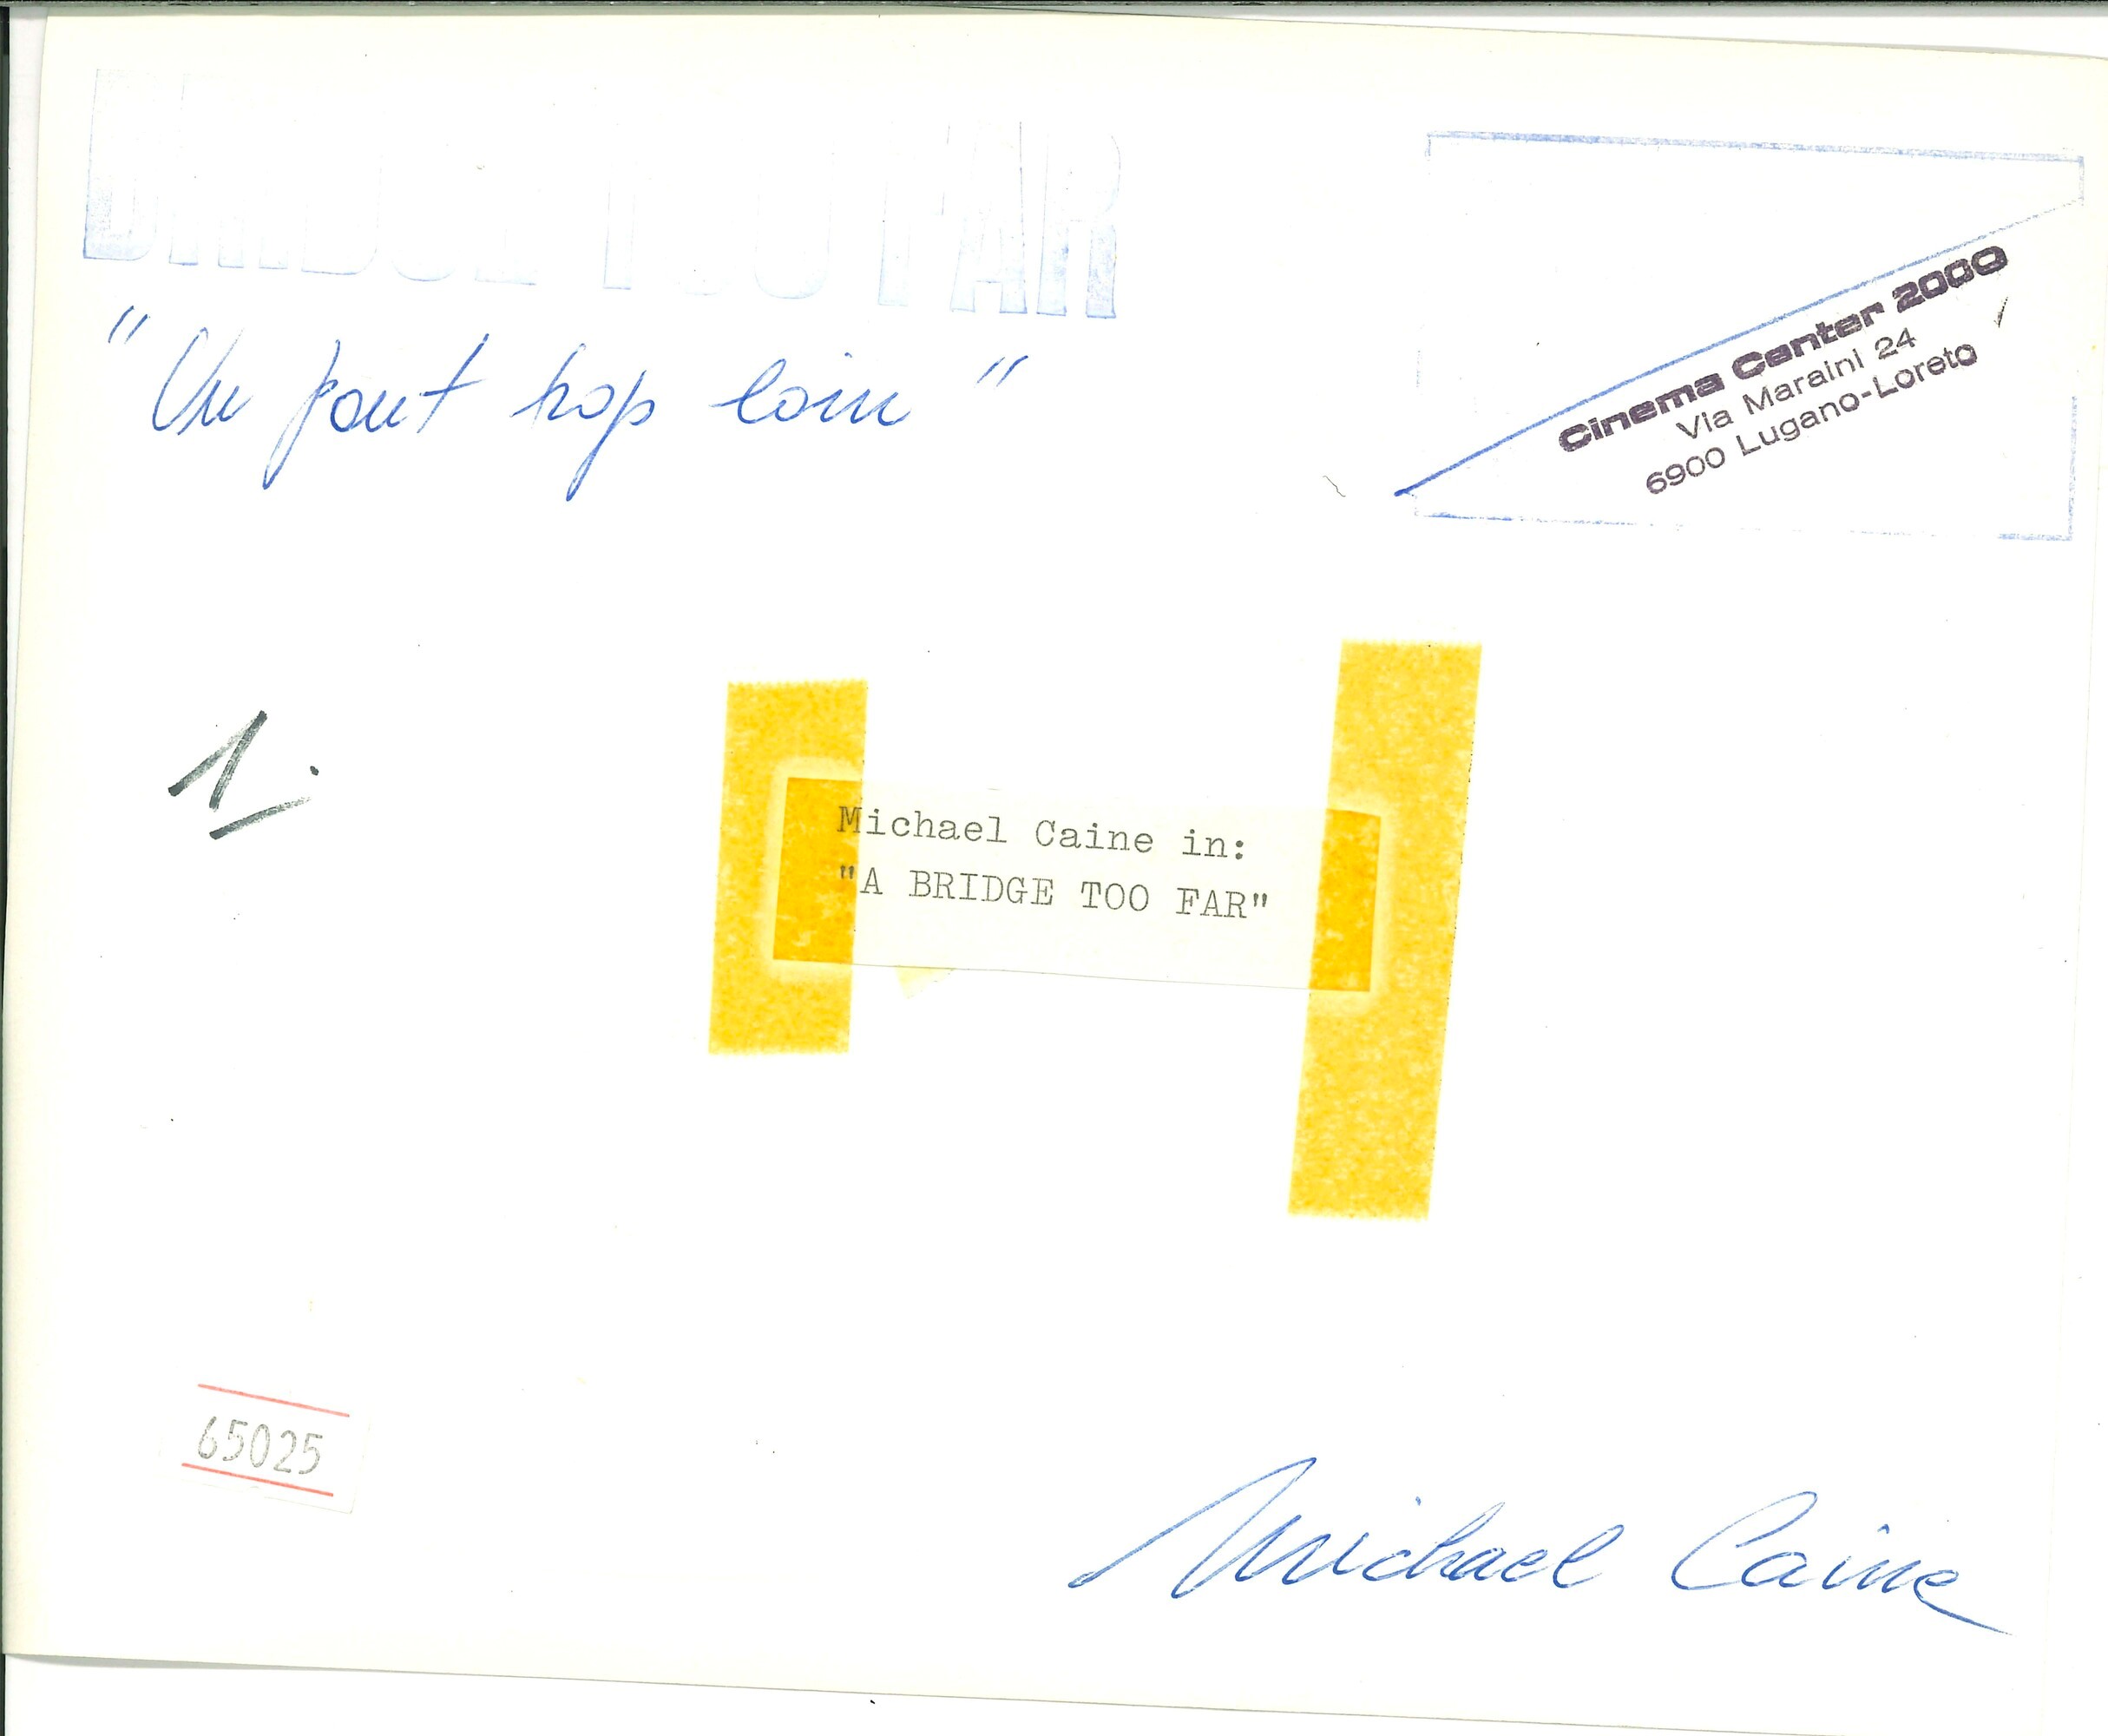 BRIDGE TOO FAR
"Un pont trop loin"
Cinema Center 2000
Via Maraini 24
6900 Lugano-Loreto
1.
Michael Caine in:
"A BRIDGE TOO FAR"
65025
Michael Caine